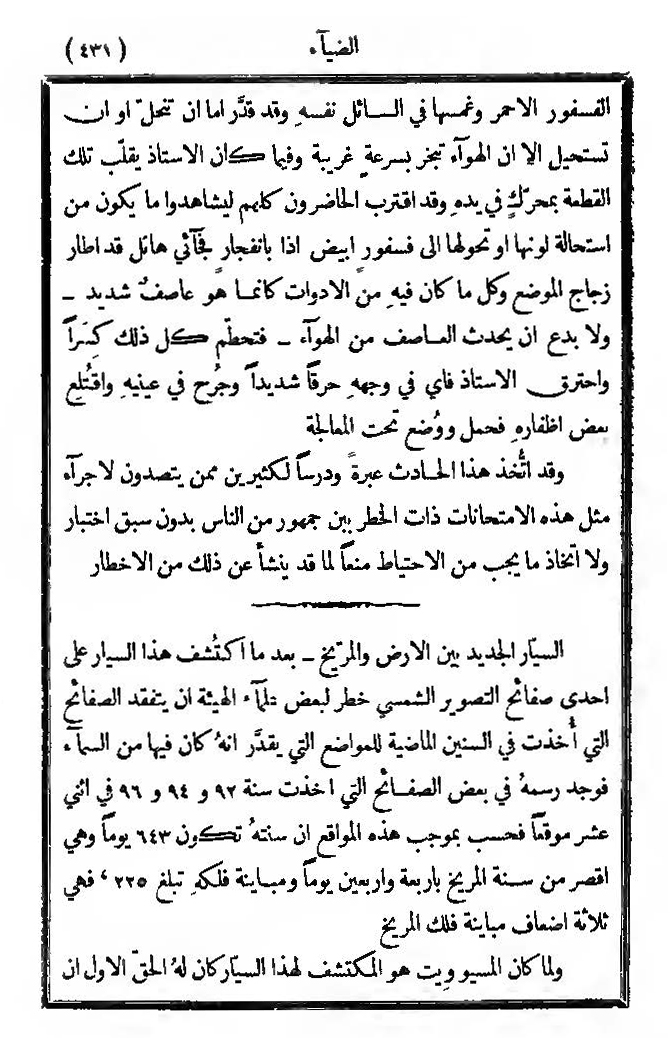 الضيآء
( ٤٣١ )
الفسفور الاحمر وغمسها في السائل نفسه وقد قدَّر اما ان تنحلّ او ان
تستحيل الا ان الهوآء تبخر بسرعةٍ غريبة وفيما كان الاستاذ يقلّب تلك
القطعة بمحرّكٍ في يدهِ وقد اقترب الحاضرون كلهم ليشاهدوا ما يكون من
استحالة لونها او تحولها الى فسفور ابيض اذا بانفجارٍ فجآئي هائل قد اطار
زجاج الموضع وكل ما كان فيهِ من الادوات كانما هو عاصفٌ شديد ــ
ولا بدع ان يحدث العاصف من الهوآء ــ فتحطّم كل ذلك كِسَراً
واحترق الاستاذ فاي في وجههِ حرقاً شديداً وجُرح في عينيهِ واقتُلع
بعض اظفارهِ فحمل ووُضع تحت المعالجة
وقد اتُّخذ هذا الحادث عبرةً ودرساً لكثيرين ممن يتصدون لاجرآء
مثل هذه الامتحانات ذات الخطر بين جمهور من الناس بدون سبق اختبار
ولا اتخاذ ما يجب من الاحتياط منعاً لما قد ينشأ عن ذلك من الاخطار
السيّار الجديد بين الارض والمرّيخ ــ بعد ما اكتُشف هذا السيار على
احدى صفائح التصوير الشمسي خطر لبعض علمآء الهيئة ان يتفقد الصفائح
التي أُخذت في السنين الماضية للمواضع التي يقدَّر انهُ كان فيها من السمآء
فوجد رسمهُ في بعض الصفائح التي اخذت سنة ٩٢ و ٩٤ و ٩٦ في اثني
عشر موقعاً فحسب بموجب هذه المواقع ان سنتهُ تكون ٦٤٣ يوماً وهي
اقصر من سنة المريخ باربعة واربعين يوماً ومباينة فلكهِ تبلغ ٢٢٥ ، فهي
ثلاثة اضعاف مباينة فلك المريخ
ولما كان المسيو ويت هو المكتشف لهذا السيّار كان لهُ الحقّ الاول ان